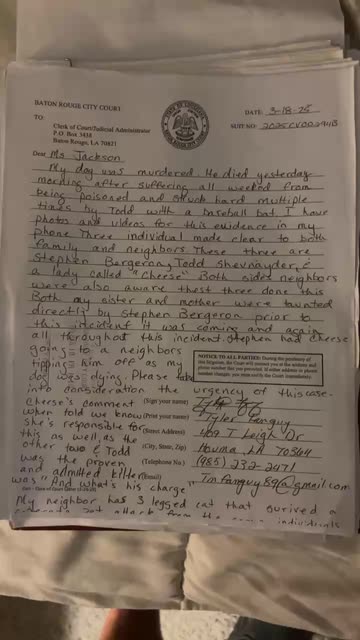 BATON ROUGE CITY COURT
DATE: 3-18-25
TO:
SUIT NO: 2025CV00294B
Clerk of Court/Judicial Administrator
P.O. Box 3438
Baton Rouge, LA 70821
Dear Ms Jackson.
My dog was murdered. He died yesterday
morning after suffering all weekend from
being poisoned and struck hard multiple
times by Todd with a baseball bat. I have
photos and videos for this evidence in my
phone Three individual made clear to both
family and neighbors. These three are
Stephen Bergeron, Todd Shevnayder, &
a lady called "Cheese" Both side neighbors
were also aware thest three done this
Both my sister and mother were taunted
directly by Stephen Bergeron prior to
this incident it was coming and again
all throughout this incident. Stephen had Cheese
going to a neighbors
tipping him off as my
dog was dying. Please take
into consideration the urgency of this case.
NOTICE TO ALL PARTIES: During the pendency of
Cheese's comment
when told we know
she's responsible for
this as well, as the
other two & Todd
was the proven
and admitted killer
was "And what's his charge"
(Sign your name)
(Print your name) Tyler Fanguy
(Street Address) 409 T Leigh Dr
(City, State, Zip) Houma LA 70364
(Telephone No.) (985) 232-2471
(Email) Tmfanguy89@gmail.com
My neighbor has 3 legged cat that survived a
attack from the same individuals